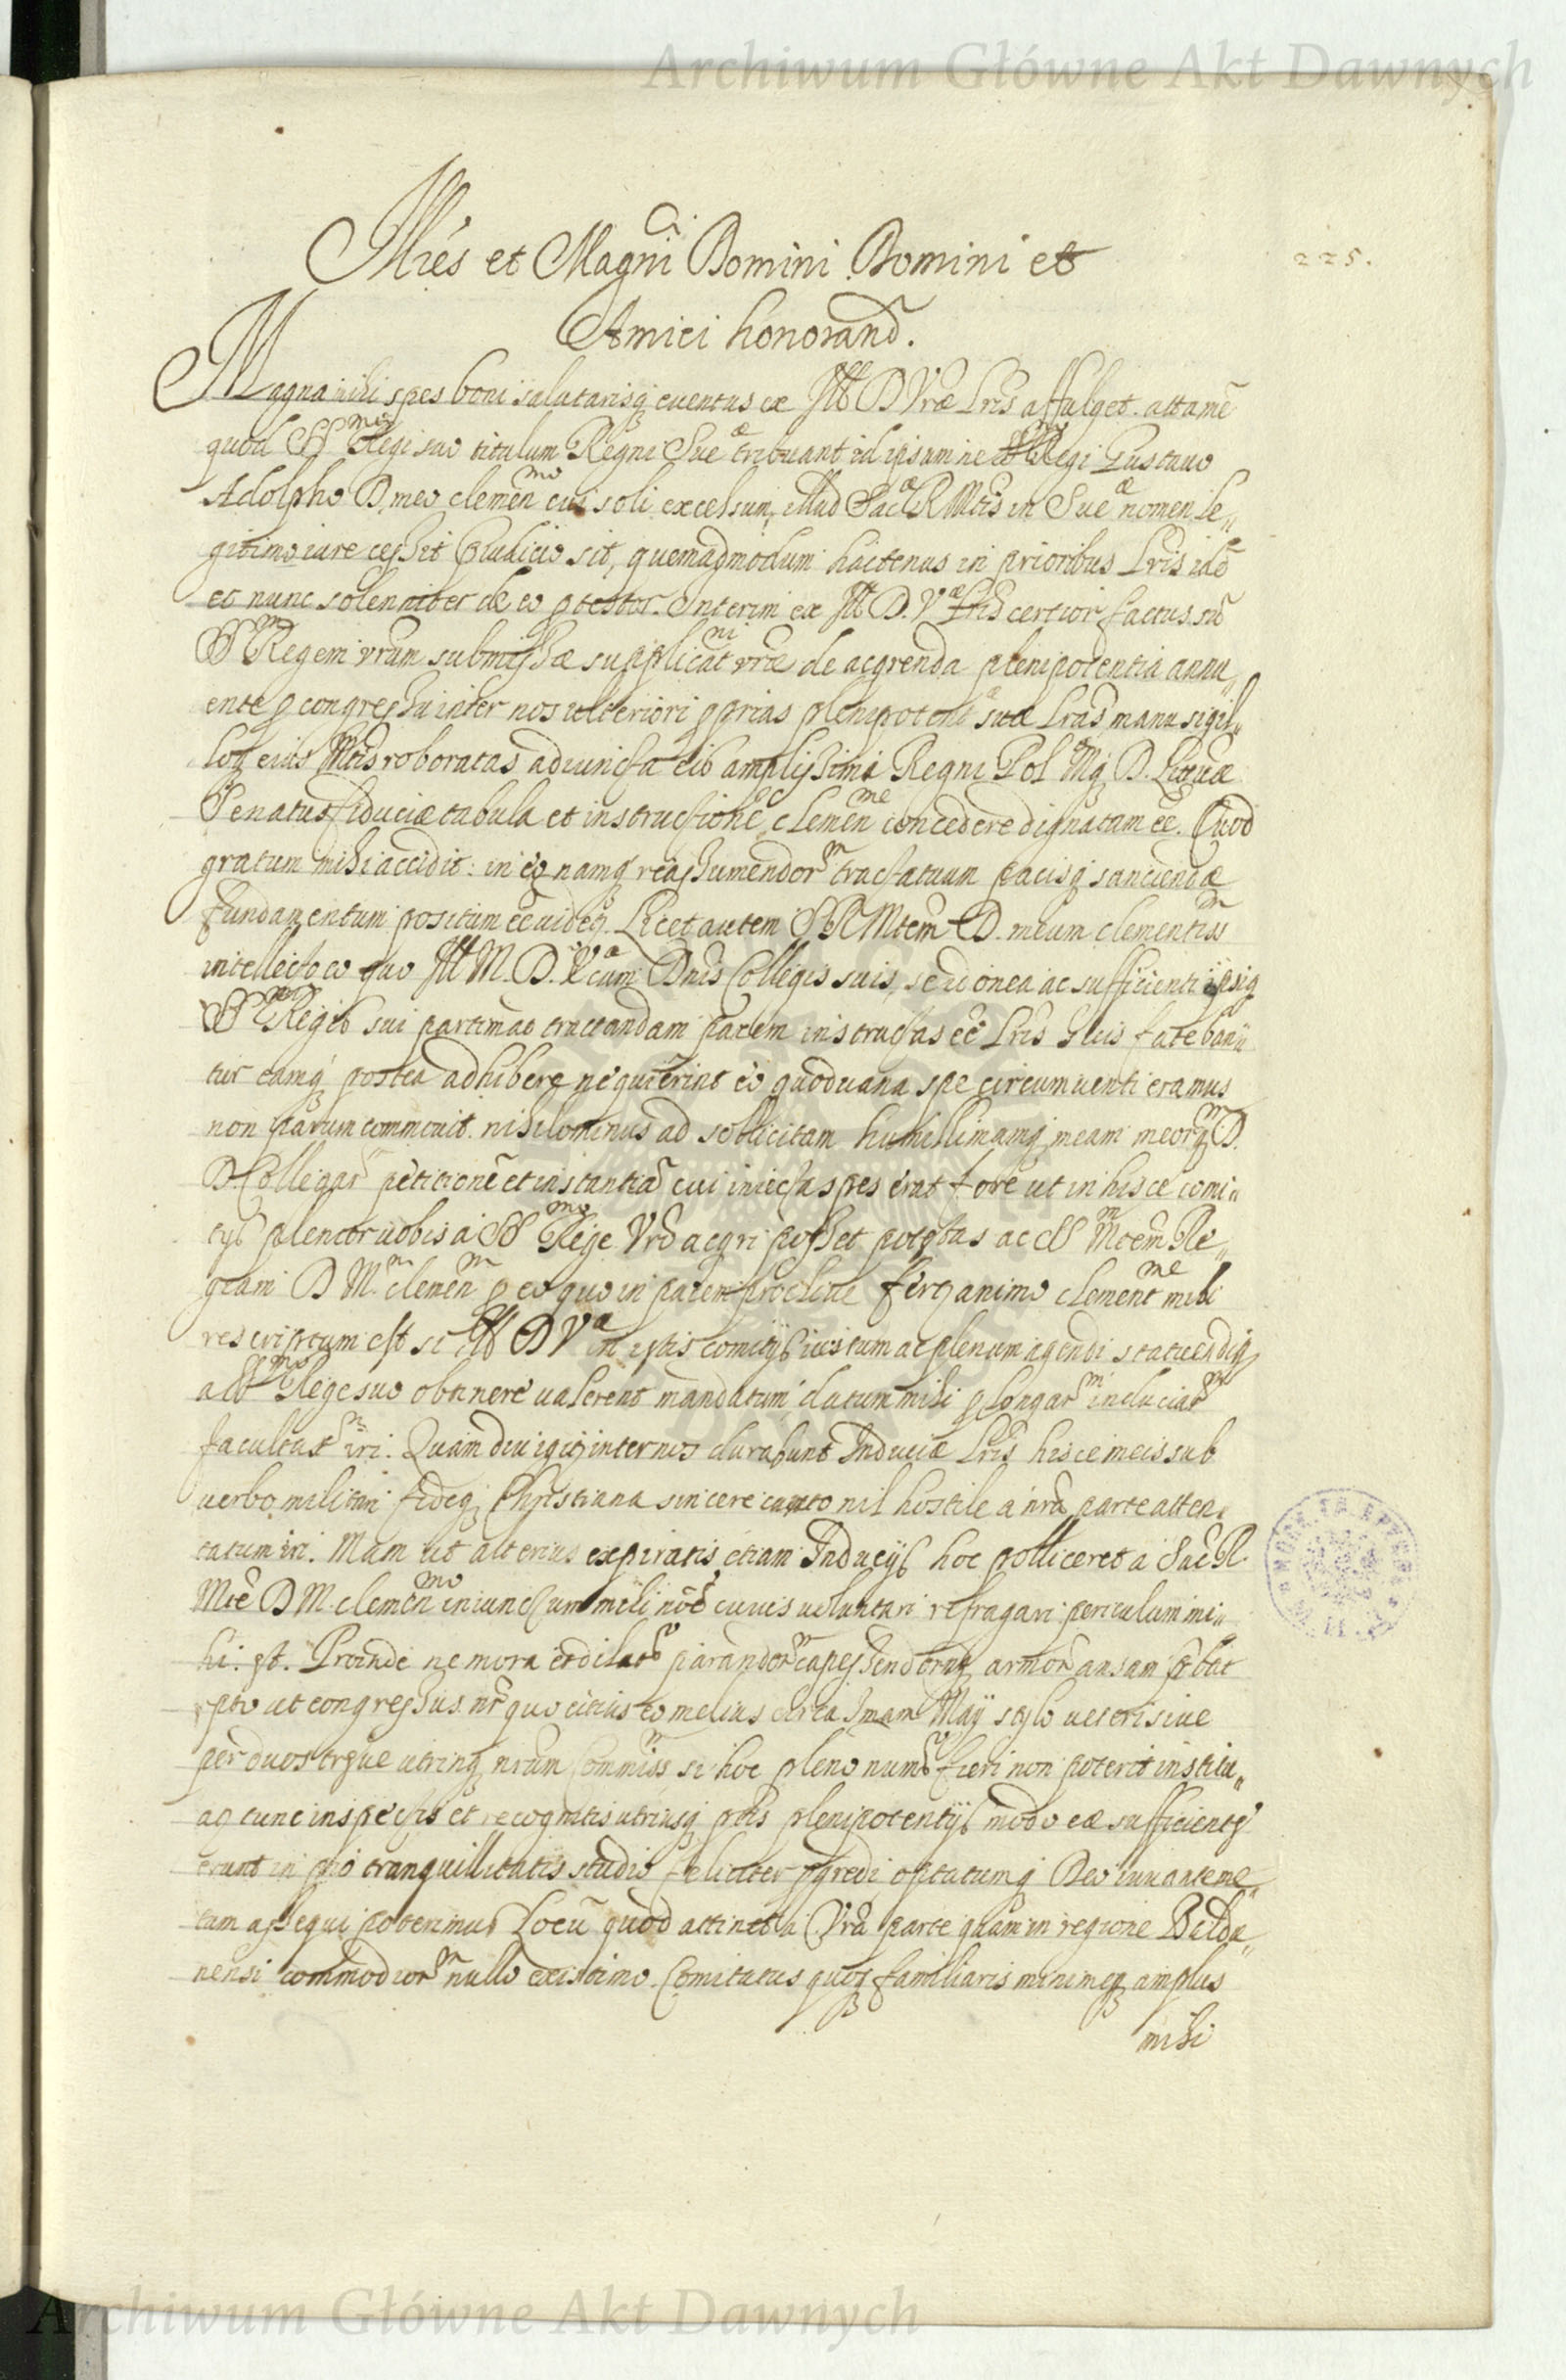 Archiwum Główne Akt Dawnych
225.
Illrés et Magci Domini Domini et
Amici honorand.
Magna mihi spes boni salutarisq eventus ex Ill D Vrae Lris affulget. attamē
quod S mo Regi suo titulum Regni Sueae tribuant id ipsum ne Regi Gustavo
Adolpho D. meo clemen mo cui soli excelsum illud Sacae R Mtis in Sueae nomen le„
gitimo iure cessit Pudicio sit, quemadmodum hactenus in prioribus Lris idē
et nunc solenniter de eo ptestor. Interim ex Ill D. Vae Lris certior factus sū
S m Regem vrum submissae supplicatni vrae de acqrenda plenipotentia annu„
ente p congressu inter nos ulteriori pprias plenipotentae suae Lras manu sigil„
loq eius Mtis roboratas adiuncta eis amplissimi Regni Pol Mq D. Lituae
Senatus fiduciae tabula et instructione clemen me concedere dignatam eē. Quod
gratum mihi accidit: in eo namq reassumendorm tractatuum pacisq sanciendae
fundamentum positum eē videt. Licet autem S R Mtem D. meum clementiss m
intellecto eo quo Ill M. D. Va cum Dnis Collegis suis, se idonea ac sufficienti
S mi Regis sui partim ad tractandam pacem instructas eē Lris suis fateban„
tur eamq postea adhibere nequierint eo quod vana spe circumventi eramus
non parum commovit. nihilominus ad sollicitam humillimamq meam meorq D.
D. Collegarm petitionē et instantiā cui iniecta spes erat fore ut in hisce comi„
tys plenior vobis à S mo Rege Vrō acqri posset potestas ac S m Mtem Re„
giam D Mm clemen m p eo quo in pacem proclive fertanimo clement me mihi
rescriptum est si Ill D Va in istis comitys iustum ac plenum agendi statuendiq
a S mo Rege suo obtinere valerent mandatum datum mihi plongarm induciarm
facultatm iri. Quam diu igit inter nos durabunt Induciae Lris hisce meis sub
verbo militari fideq Christiana sincere caveo nil hostile a nra parte atten„
tatum iri. Nam ut alterius expiratis etiam Inducys hoc pollicerer a Sac R.
Mte D M. clemen mo iniunctum mihi nōe cuius voluntati refragari periculum mi„
hi. st. Proinde ne mora et dilato parandorm capessendorūq armor ansam prbeat
opto ut congressus nr quo citius eo melius circa Imam Maij stylo veteri sive
per duos trsve utrinq nrum Commiss m si hoc pleno numro fieri non poterit institu„
ac tunc inspectis et recognitis utriusq ptis plenipotentys modo eae sufficients
erunt in pio tranquillitatis studio feliciter pgredi optatumq Deo iuvante me„
tam assequi poterimus Locū quod attinet a Vra parte quam in regione Balda„
nensi commodiorm nullo existimo. Comitatus quoq familiaris minimeq amplus
mihi
Archiwum Główne Akt Dawnych